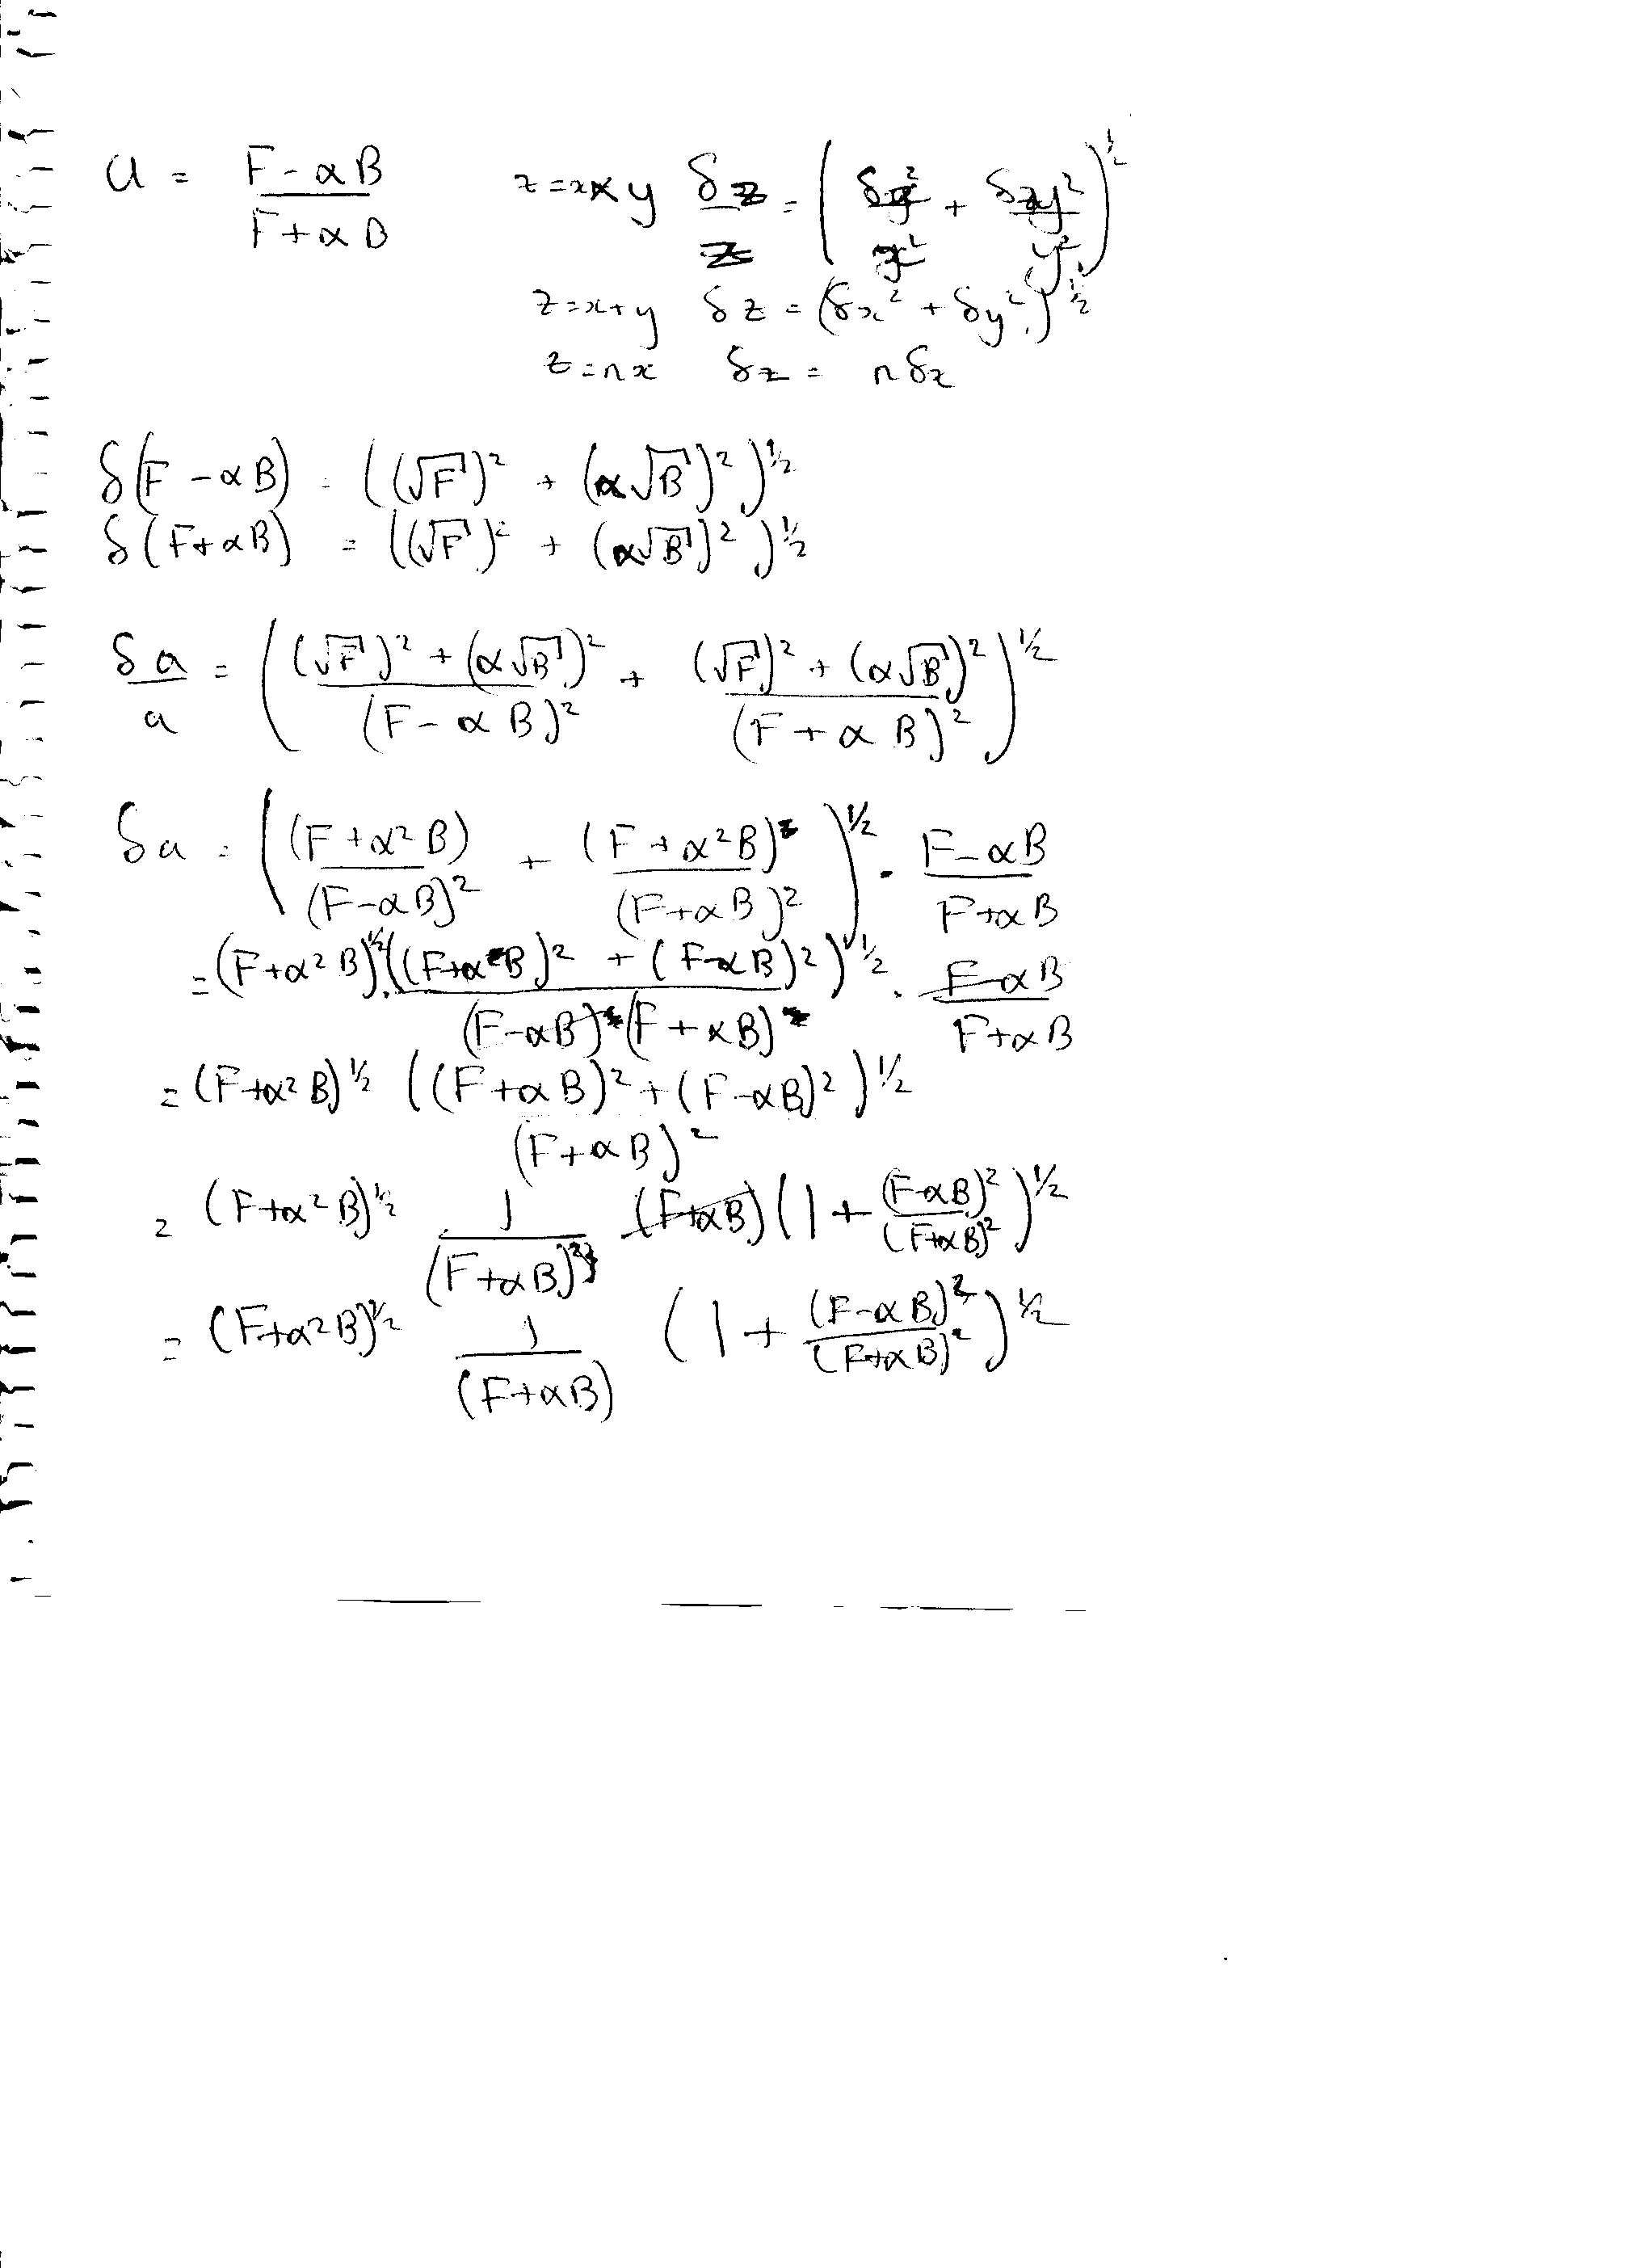 a = (F - αB)/(F + αB)    z = x × y   δz/z = (δx²/x² + δy²/y²)^½
z = x + y   δz = (δx² + δy²)^½
z = nx   δz = nδx
δ(F - αB) = ((√F)² + (α√B)²)^½
δ(F + αB) = ((√F)² + (α√B)²)^½
δa/a = (((√F)² + (α√B)²)/(F - αB)² + ((√F)² + (α√B)²)/(F + αB)²)^½
δa = ((F + α²B)/(F - αB)² + (F + α²B)/(F + αB)²)^½ · (F - αB)/(F + αB)
= (F + α²B)^½ · ((F + αB)² + (F - αB)²)^½/((F - αB)(F + αB)) · (F - αB)/(F + αB)
= (F + α²B)^½ ((F + αB)² + (F - αB)²)^½/(F + αB)²
= (F + α²B)^½ 1/(F + αB)² (F + αB)(1 + (F - αB)²/(F + αB)²)^½
= (F + α²B)^½ 1/(F + αB) (1 + (F - αB)²/(F + αB)²)^½